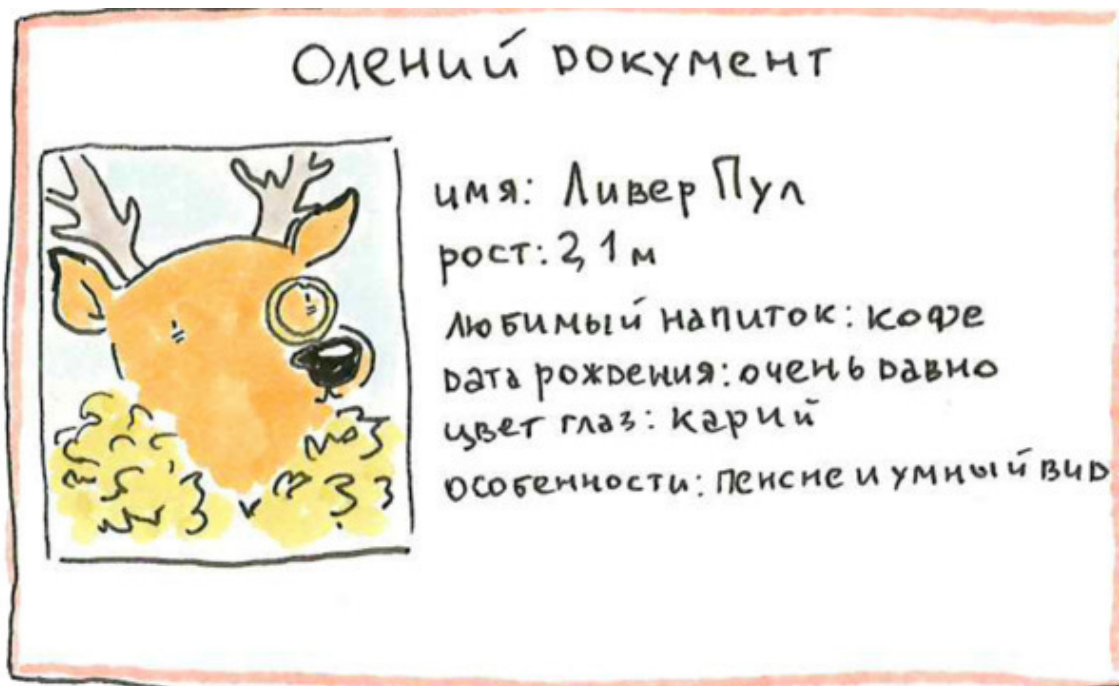 Олений документ
имя: Ливер Пул
рост: 2,1 м
любимый напиток: кофе
дата рождения: очень давно
цвет глаз: карий
особенности: пенсне и умный вид